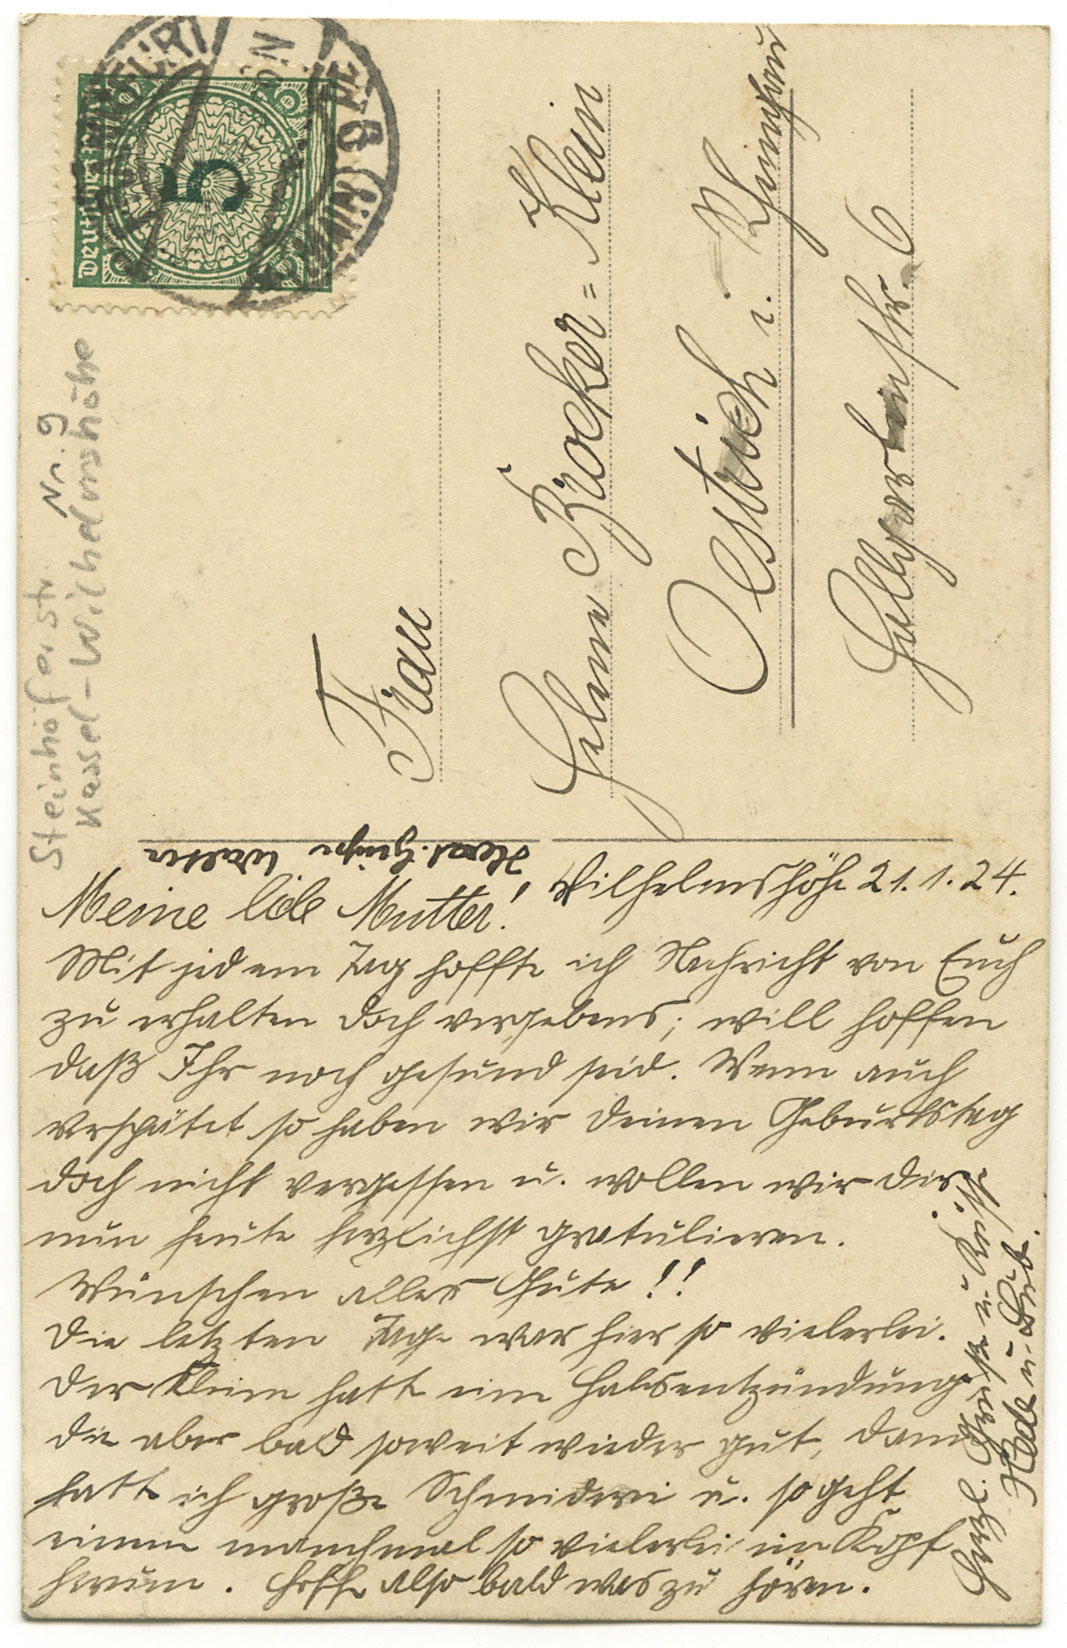 Steinhöferstr. Nr. 9
Kassel-Wilhelmshöhe
Deutsches
5
Frau
Helene Brocker=Klein
Oestrich i. Rheingau
6
Herzl. Grüße Walter
Wilhelmshöhe 21.1.24.
Meine liebe Mutter!
Mit jedem Tag hoffte ich Nachricht von Euch
zu erhalten doch vergebens; will hoffen
daß Ihr noch gesund seid. Wenn auch
verspätet so haben wir deinen Geburtstag
doch nicht vergessen u. wollen wir dir
nun heute herzlichst gratulieren.
Wünschen alles Gute!!
Die letzten Tage war hier so vielerlei.
Der Kleine hatte eine Halsentzündung
die aber bald soweit wieder gut, dann
hatte ich große Schneiderei u. so geht
einem manchmal so vielerlei im Kopf
herum. Hoffe also bald was zu hören.
Herzl. Grüße u. Küsse
Hede u. Bub.